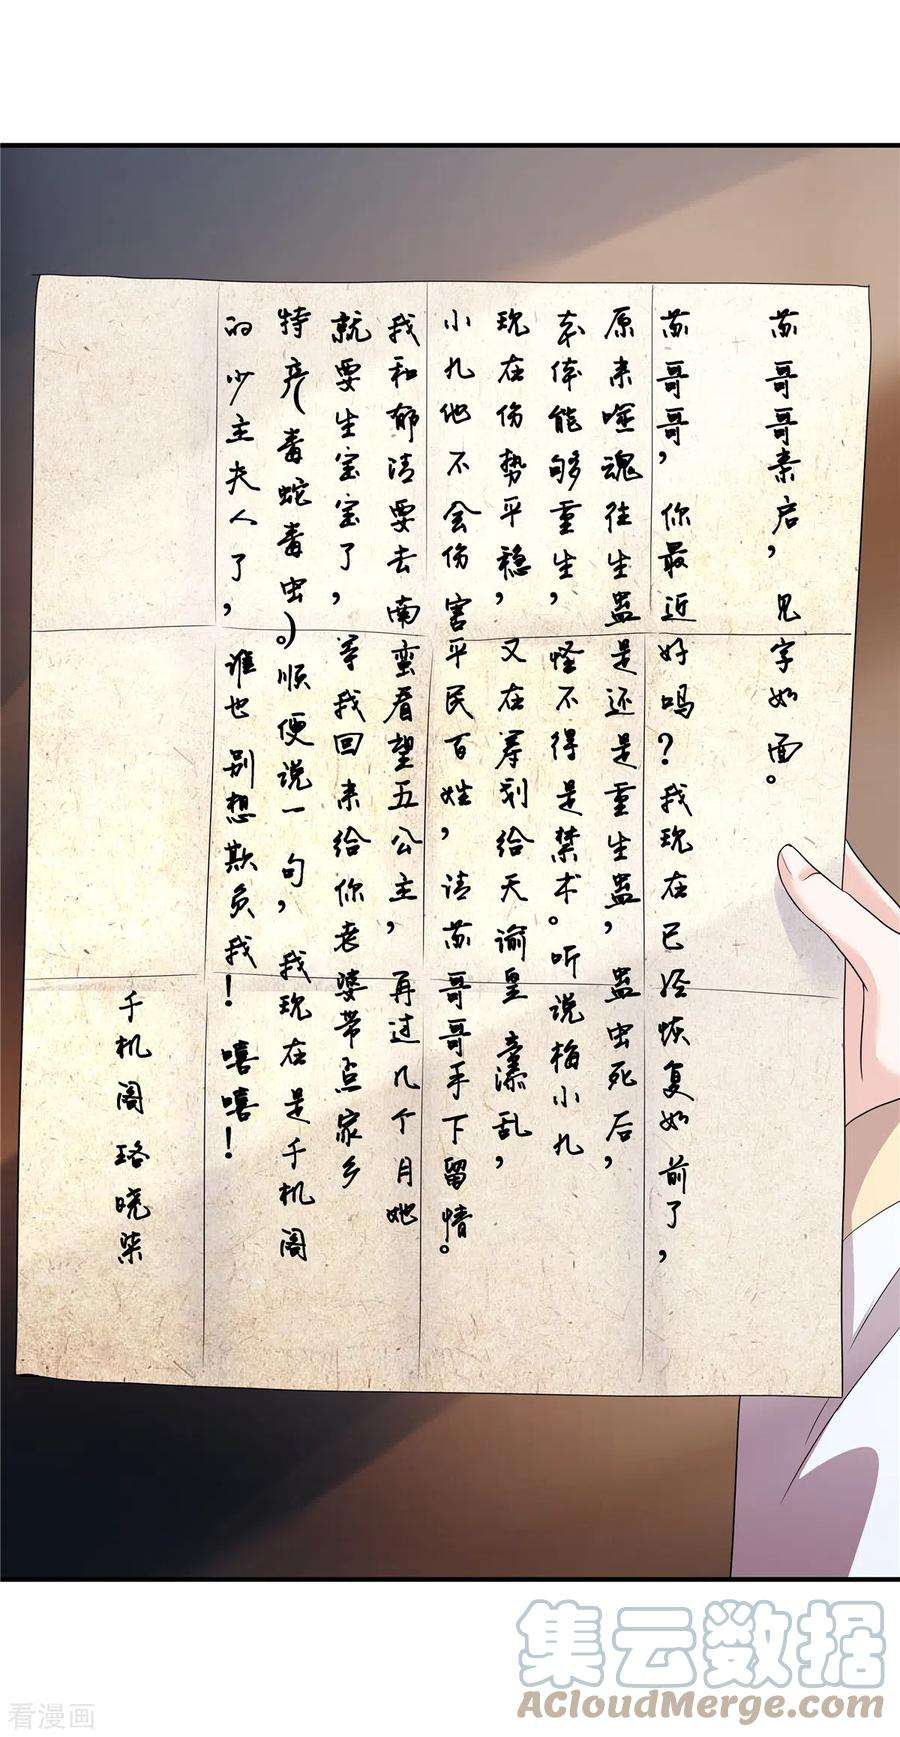 苏哥哥亲启，见字如面。
苏哥哥，你最近好吗？我现在已经恢复如前了，
原来噬魂往生蛊是还是重生蛊，蛊虫死后，
本体能够重生，怪不得是禁术。听说梅小九
现在伤势平稳，又在筹划给天谕皇室添乱，
小九他不会伤害平民百姓，请苏哥哥手下留情。
我和郁清要去南蛮看望五公主，再过几个月她
就要生宝宝了，等我回来给你老婆带点家乡
特产（毒蛇毒虫）。顺便说一句，我现在是千机阁
的少主夫人了，谁也别想欺负我！嘻嘻！
千机阁珞晓柒
集云数据
ACloudMerge.com
看漫画